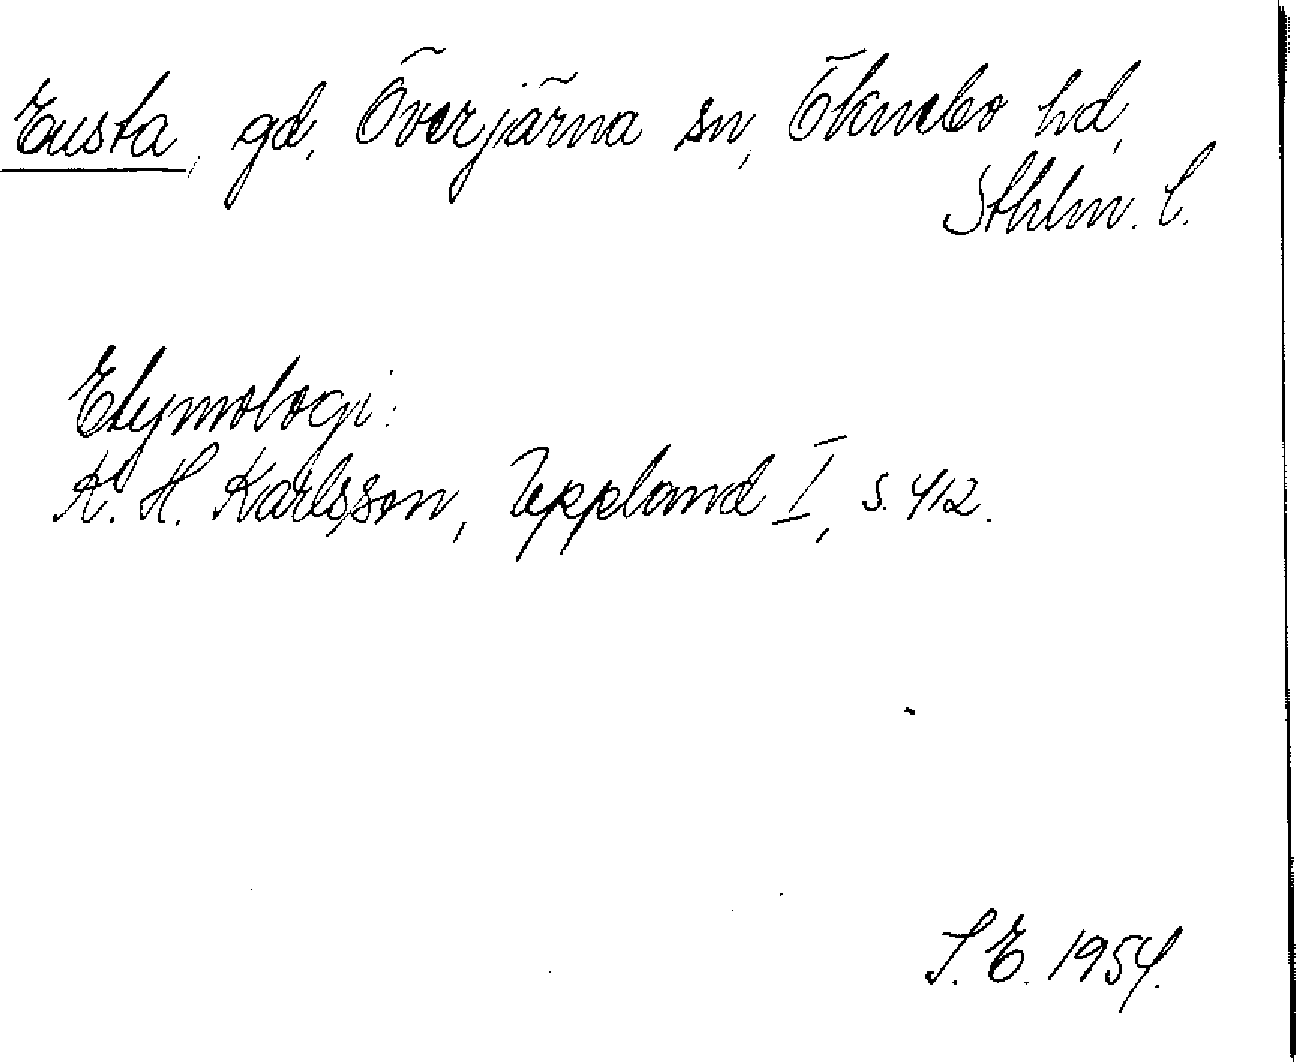 Eusta, gd, Överjärna sn, Öknebo hd,
Sthlm. l.
Etymologi:
K. H. Karlsson, Uppland I, s. 412.
S. E. 1954.